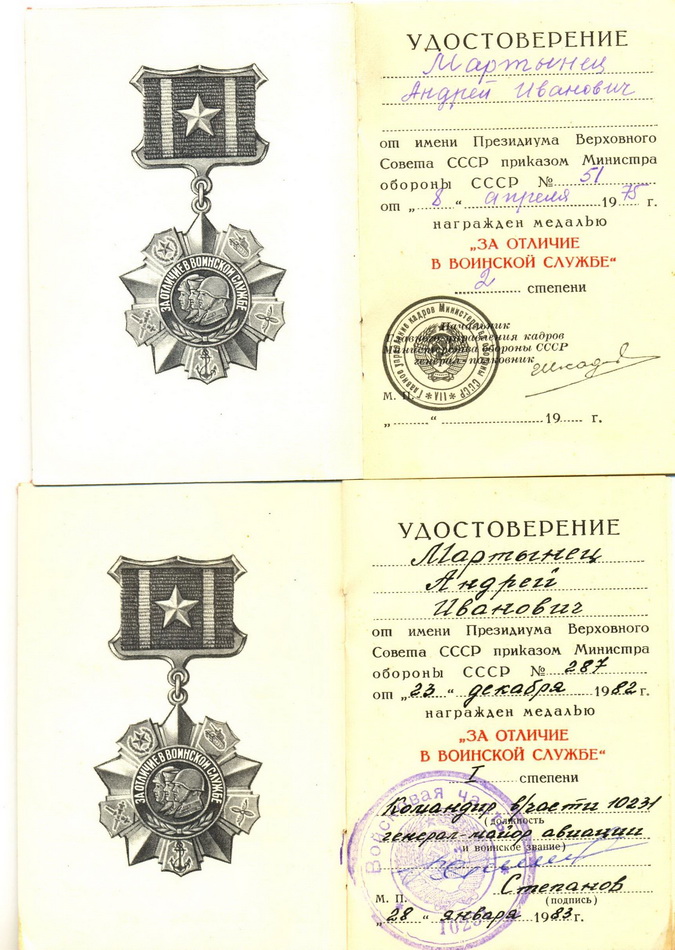 ЗА ОТЛИЧИЕ В ВОИНСКОЙ СЛУЖБЕ
УДОСТОВЕРЕНИЕ
Мартынец
Андрей Иванович
от имени Президиума Верховного
Совета СССР приказом Министра
обороны СССР № 51
от „8“ апреля 1975 г.
награжден медалью
„ЗА ОТЛИЧИЕ
В ВОИНСКОЙ СЛУЖБЕ“
2 степени
Начальник
Главного управления кадров
Министерства обороны СССР
генерал-полковник
М. П.
„ “ 19 г.
ЗА ОТЛИЧИЕ В ВОИНСКОЙ СЛУЖБЕ
УДОСТОВЕРЕНИЕ
Мартынец
Андрей
Иванович
от имени Президиума Верховного
Совета СССР приказом Министра
обороны СССР № 287
от „23“ декабря 1982 г.
награжден медалью
„ЗА ОТЛИЧИЕ
В ВОИНСКОЙ СЛУЖБЕ“
I степени
Командир в/части 10231
(должность
генерал-майор авиации
и воинское звание)
Степанов
М. П. (подпись)
„28“ января 1983 г.